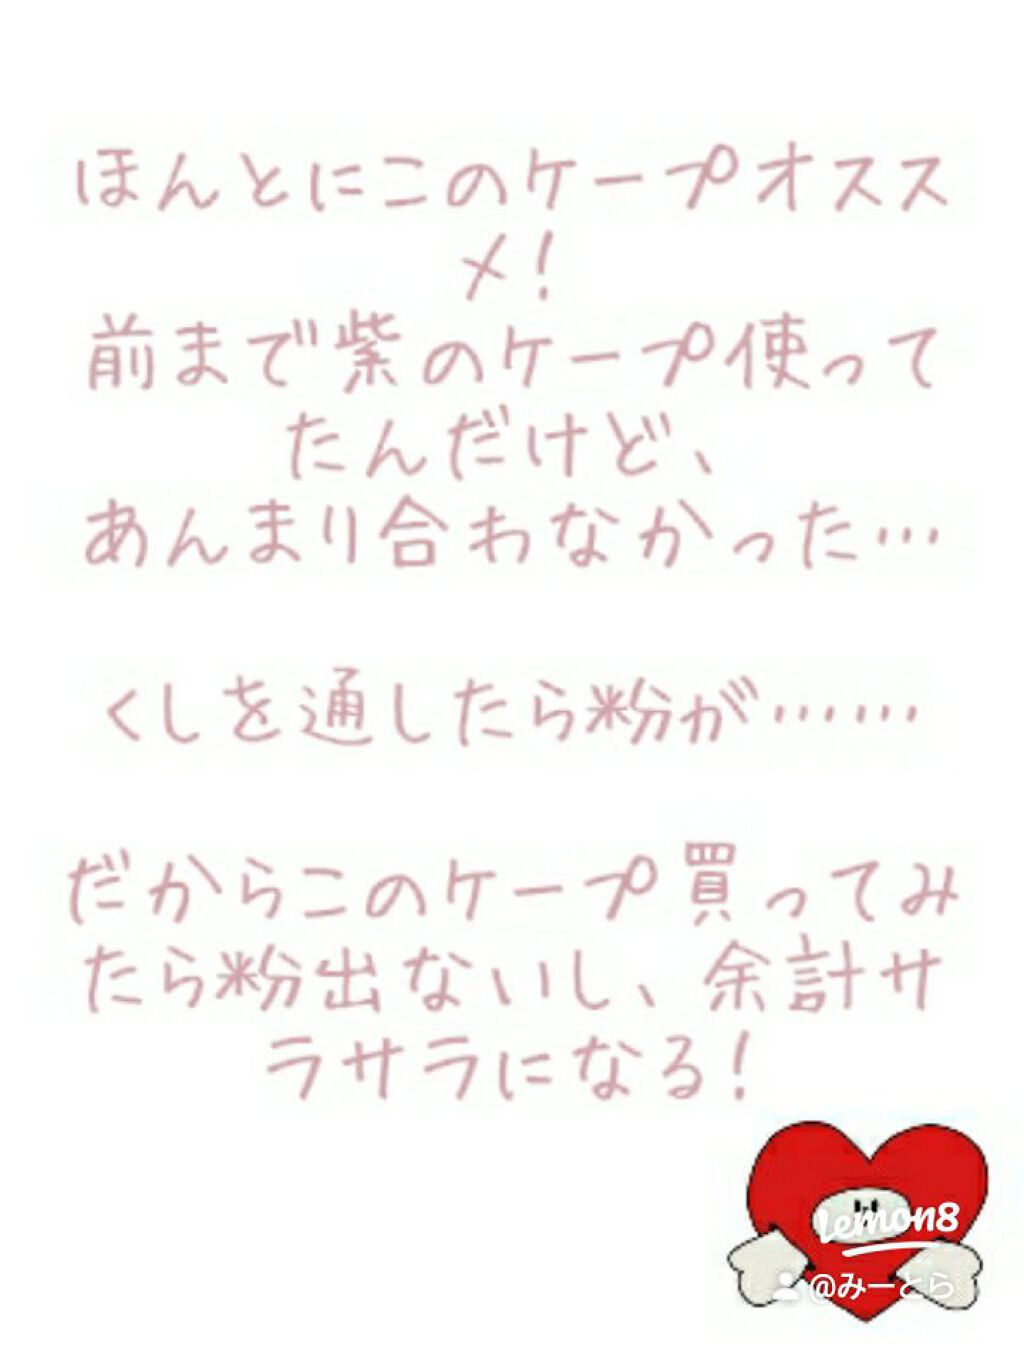 ほんとにこのケープオスス
メ!
前まで紫のケープ使って
たんだけど、
あんまり合わなかった…
くしを通したら粉が……
だからこのケープ買ってみ
たら粉出ないし、余計サ
ラサラになる!
Lemon8
@みーとら